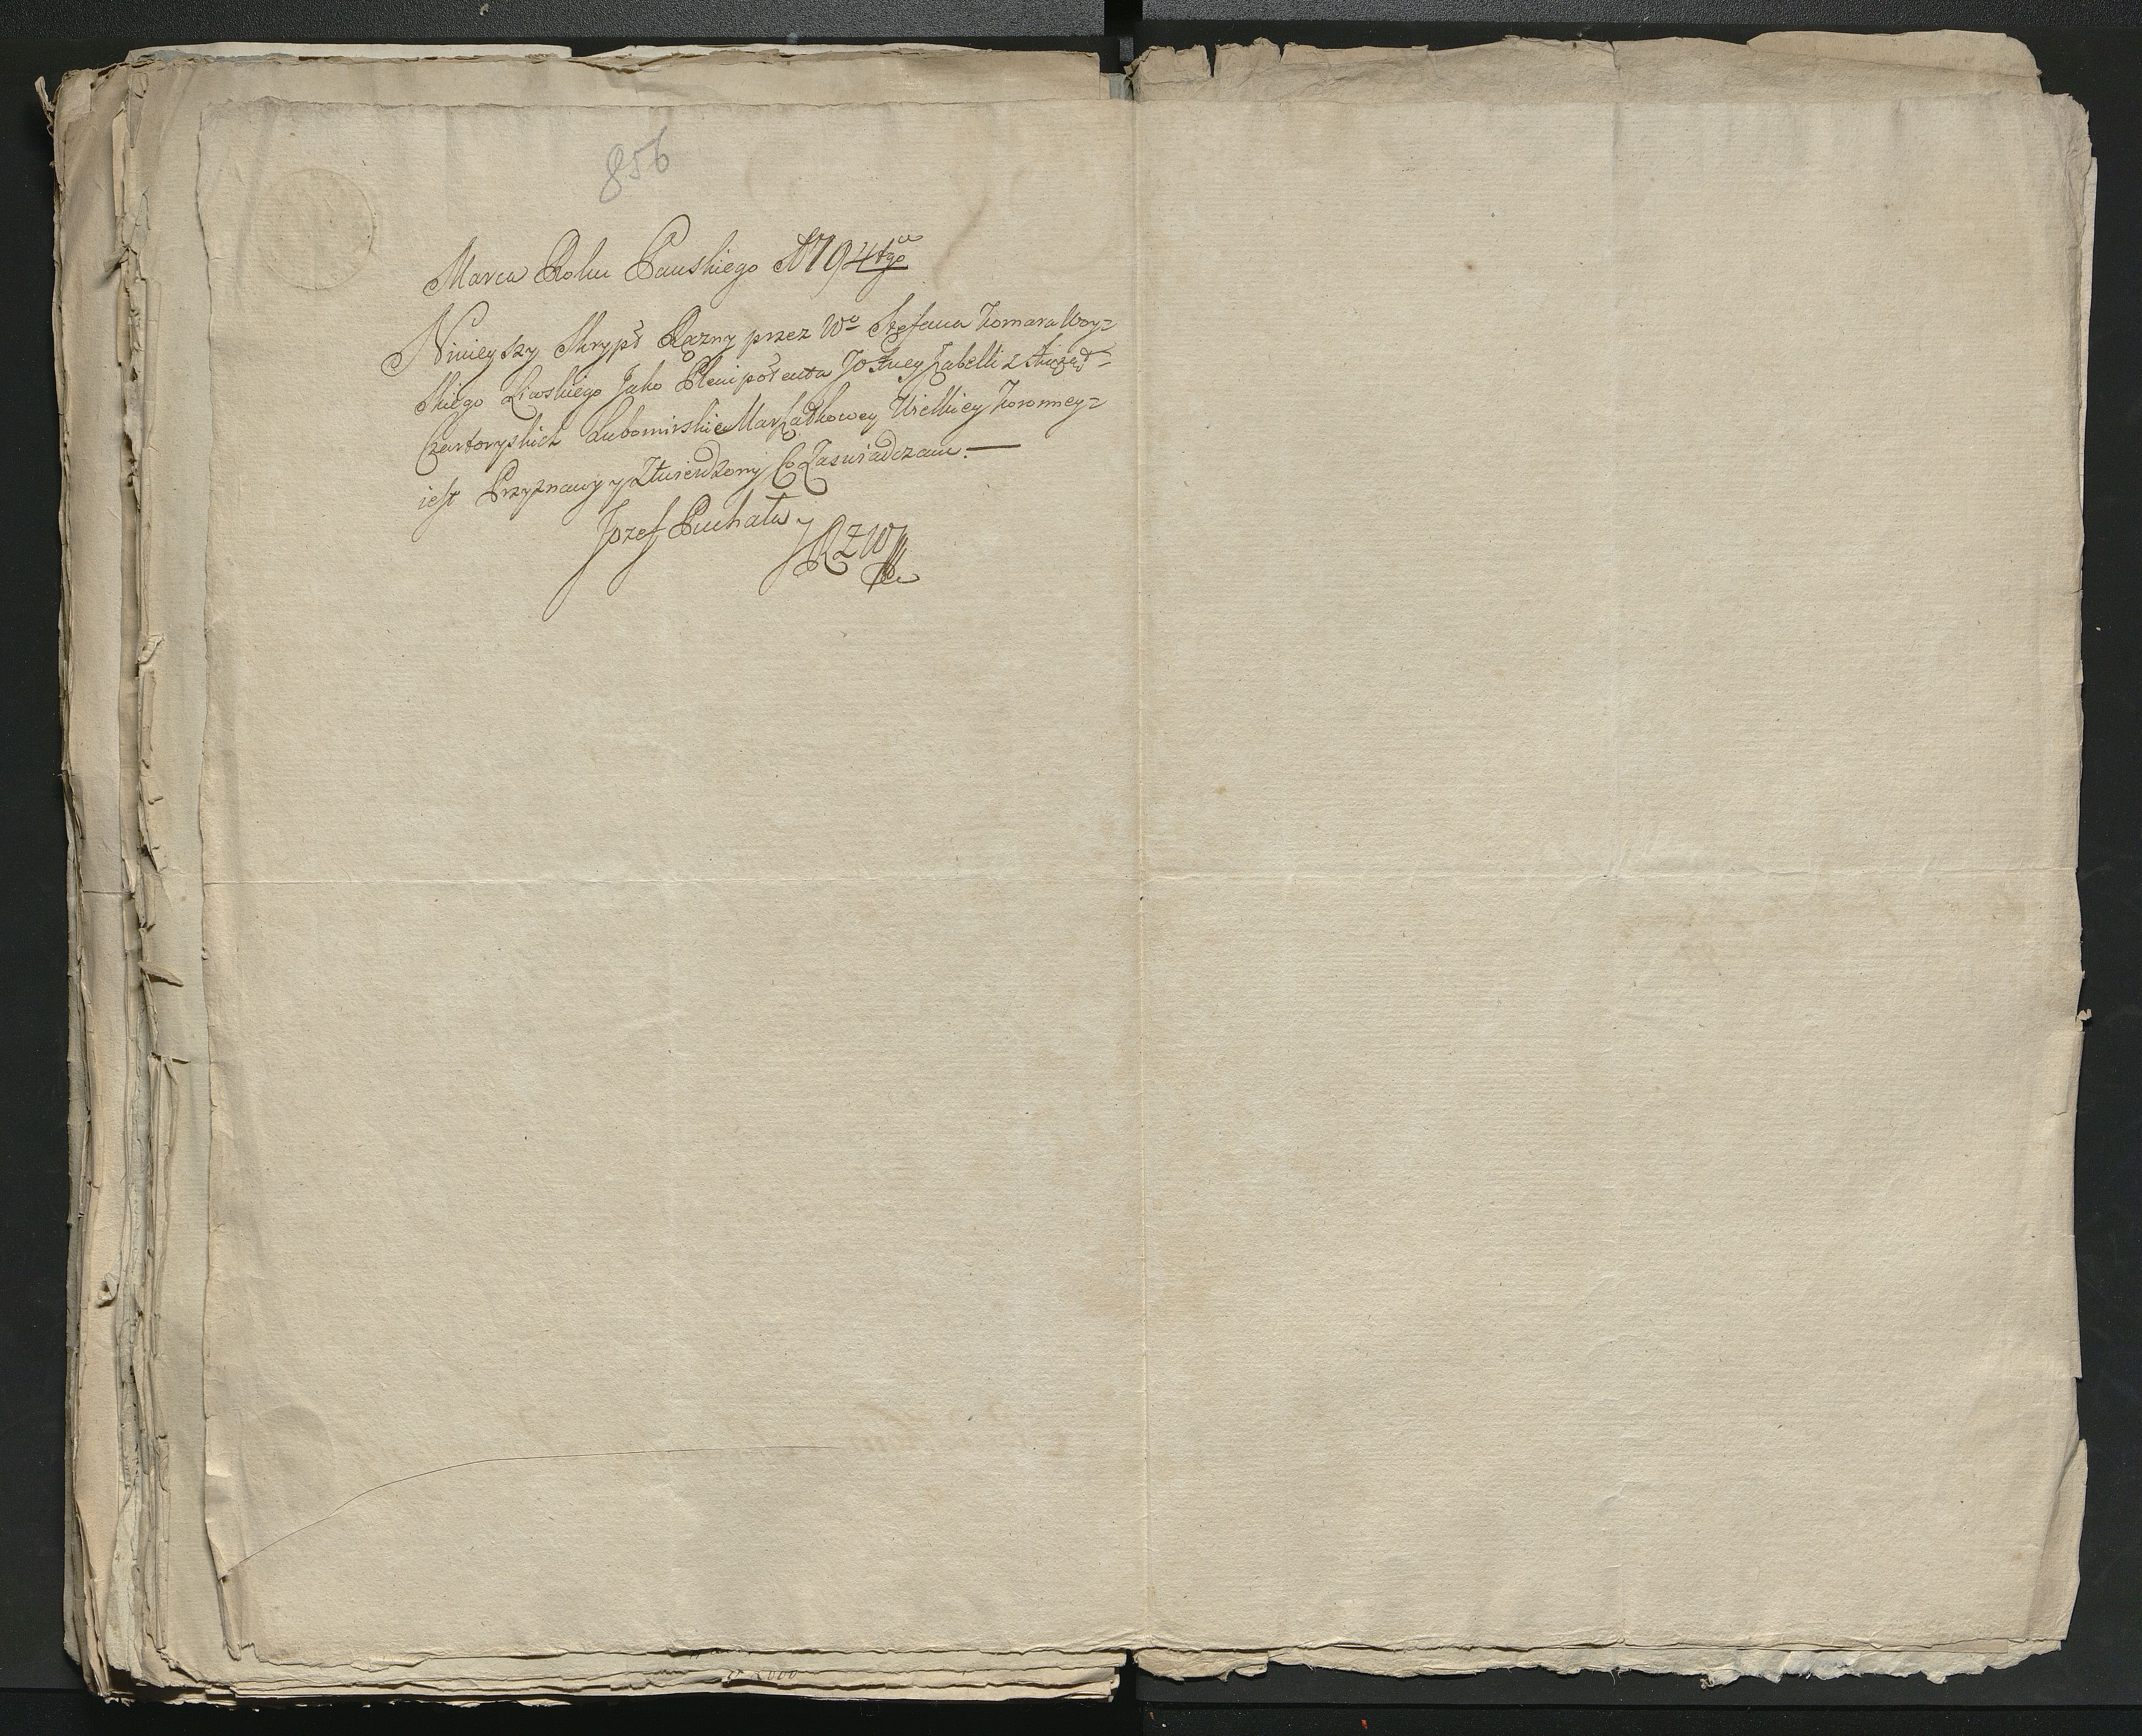 856
Marca Roku Panskiego 1794tgo
Ninieyszy Skrypt Ręczny przez Wo Stefana Komara Woy=
Skiego Liwskiego Jako Plenipotenta JO Xney Izabelli z Xiążąt=
Czartoryskich Lubomirskie Marszałkowey Wielkiey Koronney=
iest Przyznany y Ztwierdzony Co Zaswiadczam.—
Jozef Puchała